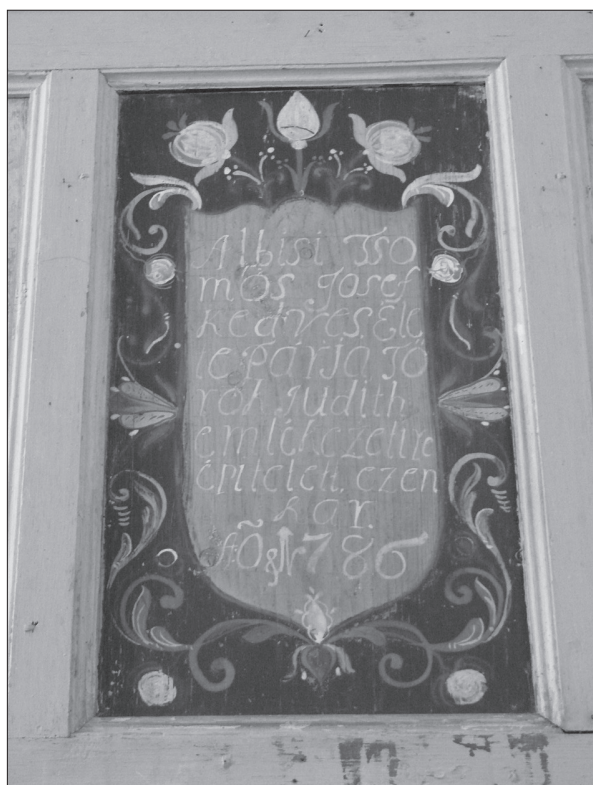 Albisi Tso
mós Josef
kedves Éle
te Párja Tö
rök Judith
emlékezetire
épitetett ezen
kar.
A:Õ 1786